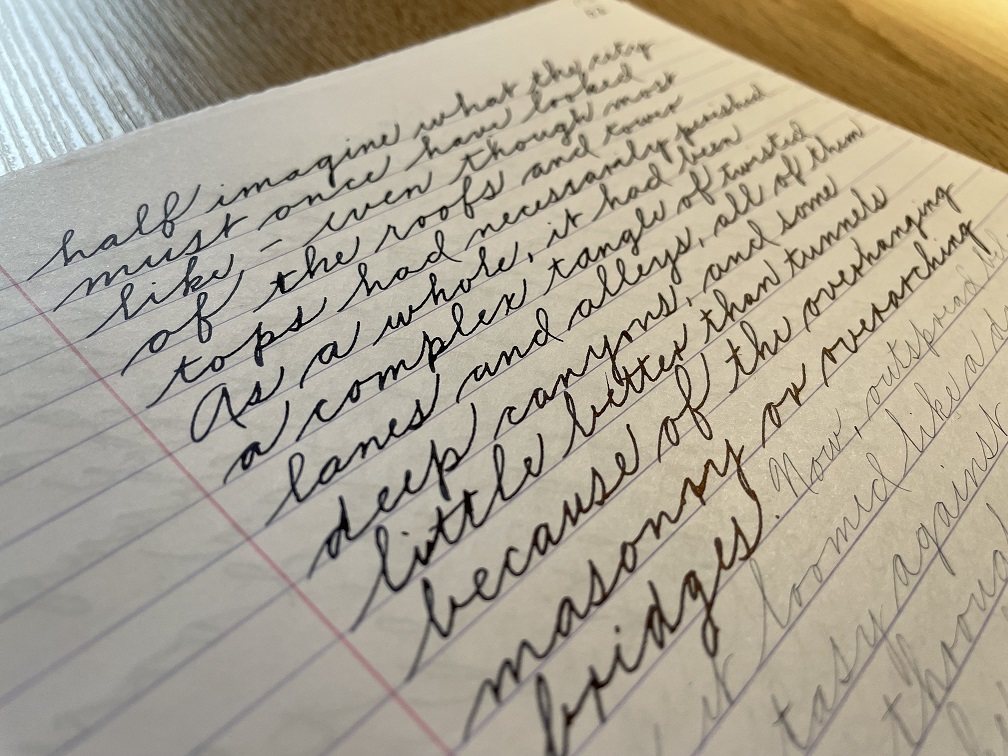 half imagine what the city
must once have looked
like, – even though most
of the roofs and tower
tops had necessarily perished
As a whole, it had been
a complex tangle of twisted
lanes and alleys, all of them
deep canyons, and some
little better than tunnels
because of the overhanging
masonry or overarching
bridges. Now, outspread
it loomed like a d
tasy against
throug